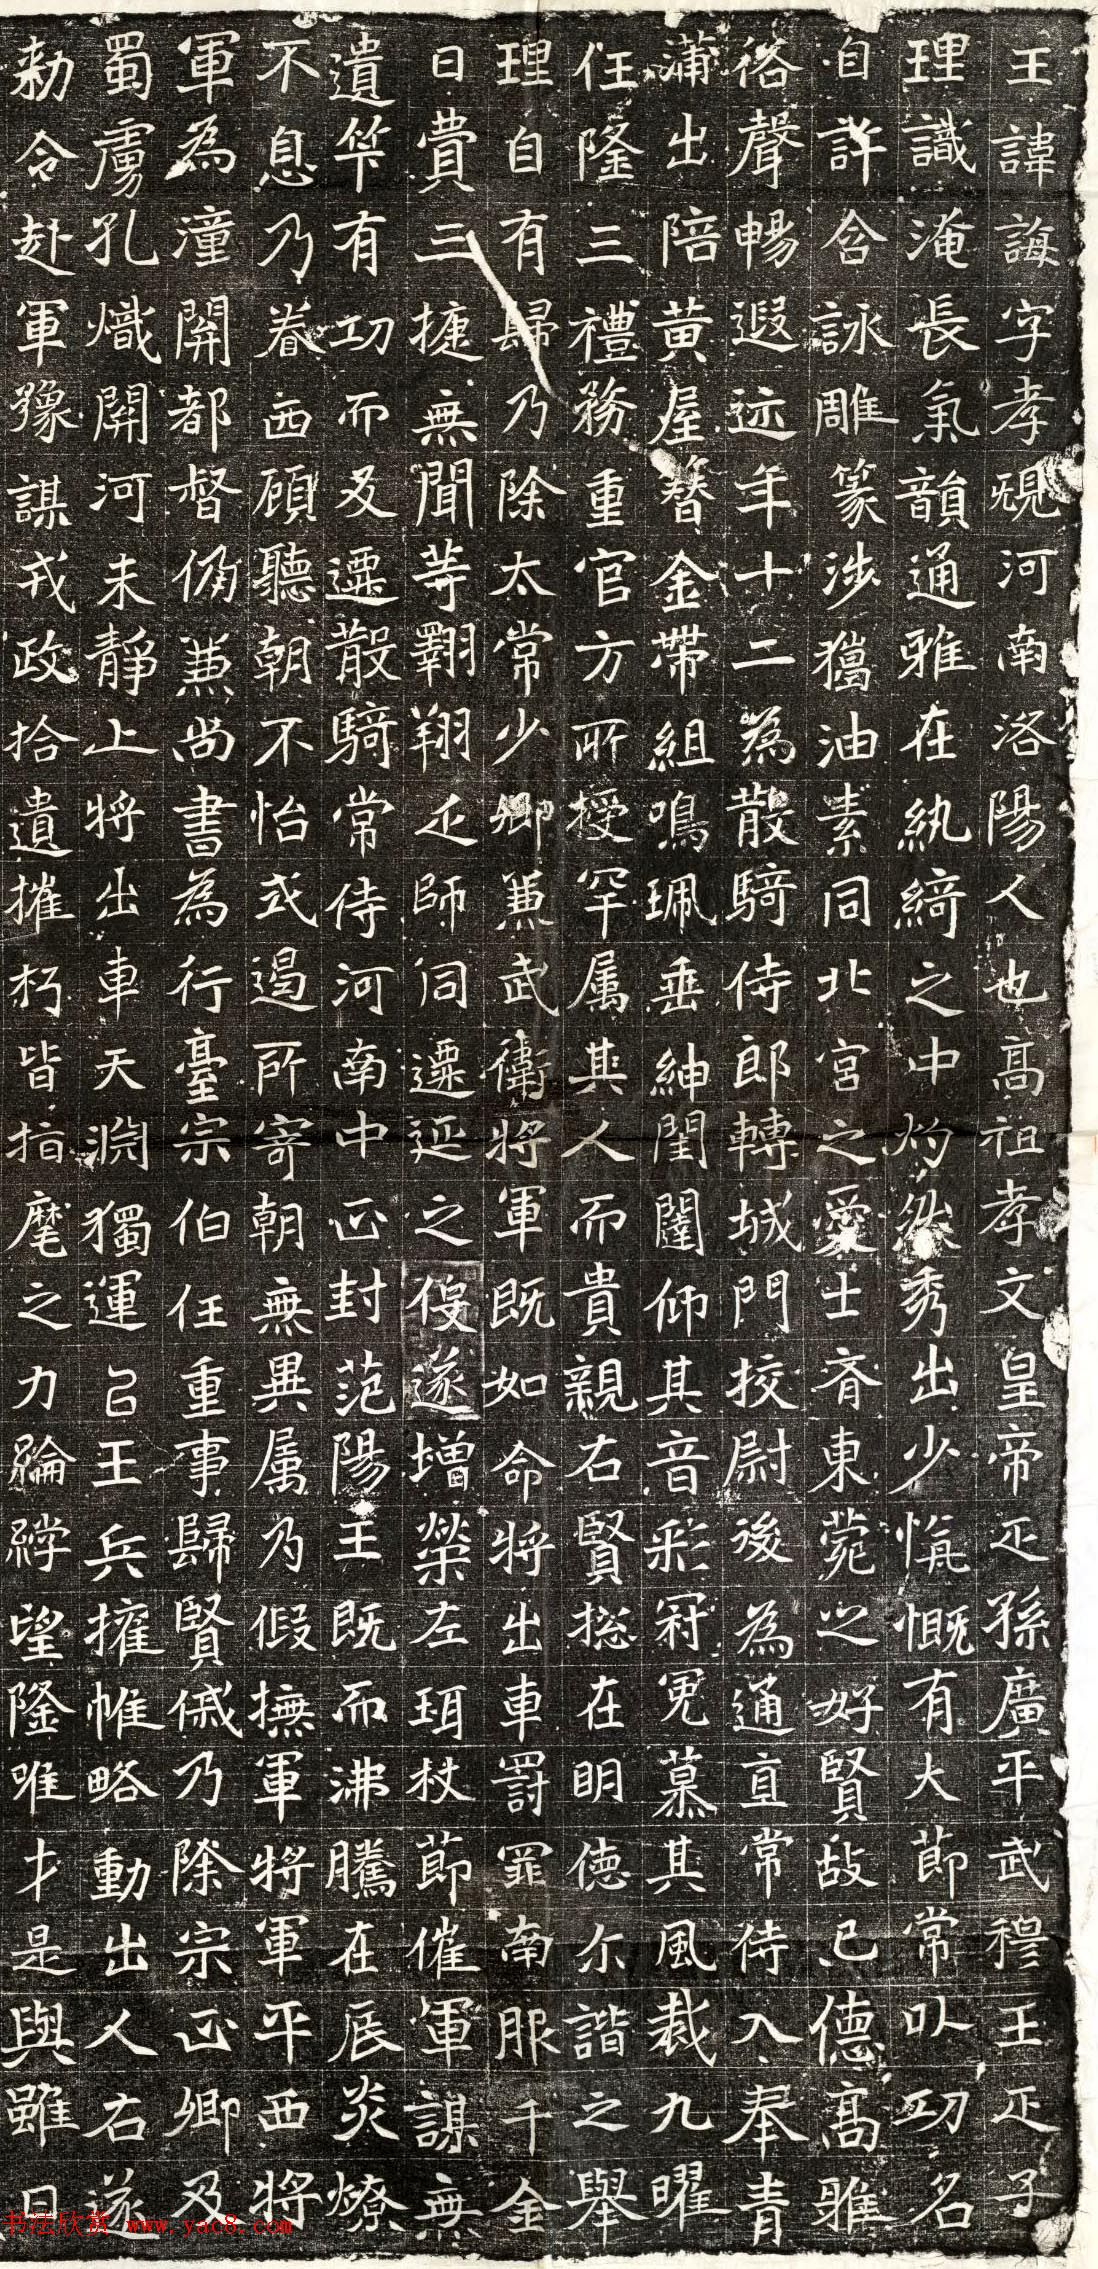 王諱誨字孝規河南洛陽人也高祖孝文皇帝疋孫廣平武穆王疋子
理識淹長氣韻通雅在紈綺之中灼然秀出少慷慨有大節常以功名
自許含詠雕篆涉獵油素同北宮之愛士齊東菀之好賢故已德高雅
俗聲暢遐迩年十二為散騎侍郎轉城門挍尉後為通直常侍入奉青
蒲出陪黃屋簪金帶組鳴珮垂紳閨闥仰其音彩冠冕慕其風裁九曜
任隆三禮務重官方所授罕属其人而貴親右賢摠在明德尒諧之舉
理自有歸乃除太常少卿兼武衛將軍既如命將出車罰罪南服千金
日費三捷無聞等翺翔之師同遷延之侵遂增榮左珥杖節催軍謀無
遺筭有功而及遷散騎常侍河南中正封范陽王既而沸騰在辰炎燎
不息乃眷西顧聽朝不怡式遏所寄朝無異属乃假撫軍將軍平西將
軍為潼關都督俻兼尚書為行臺宗伯任重事歸賢戚乃除宗正卿及
蜀虜孔熾關河未靜上將出車天淵獨運召王兵擁帷略動出入右遂
勑令赴軍豫謀戎政拾遺摧朽皆指麾之力綸綍望隆唯才是與雖日
书法欣赏 www.yac8.com